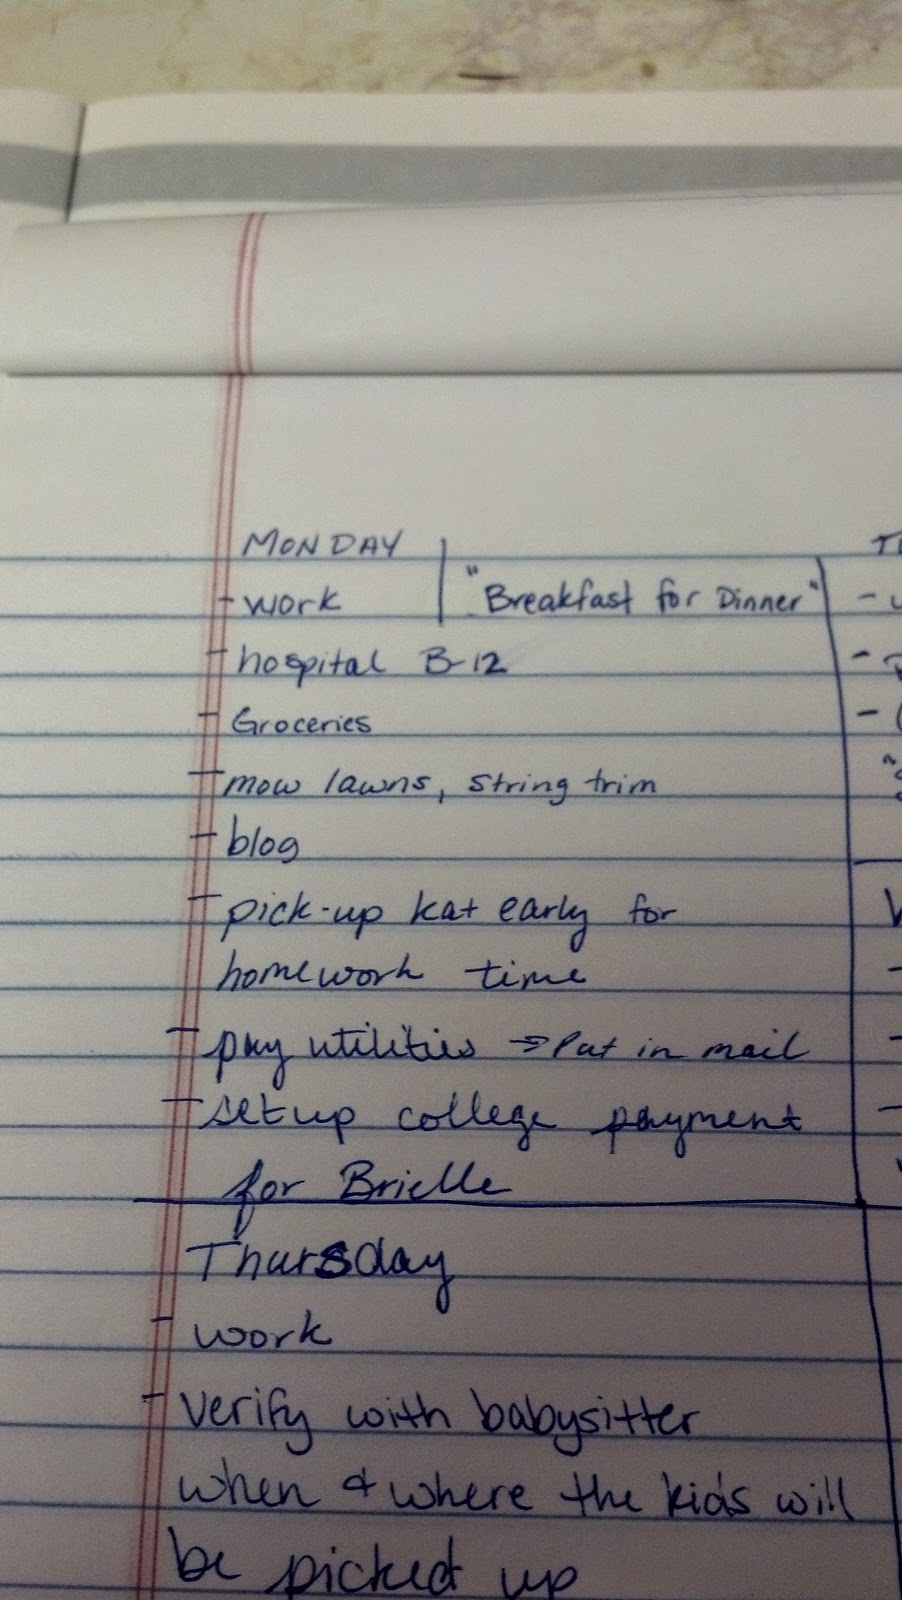 MONDAY
- work "Breakfast for Dinner"
- hospital B-12
- Groceries
- mow lawns, string trim
- blog
- pick-up kat early for
homework time
- pay utilities → Put in mail
- set up college payment
for Brielle
Thursday
- work
- verify with babysitter
when & where the kids will
be picked up